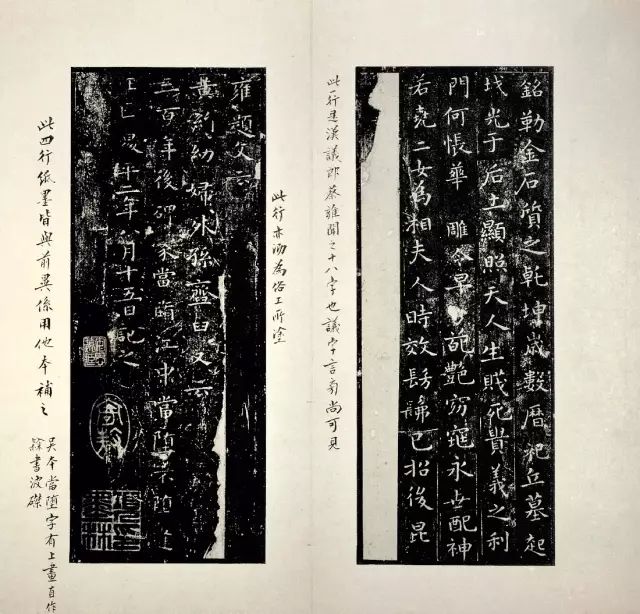 銘勒金石質之乾坤歲數曆祀丘墓起
墳光于后土顯照天人生賤死貴義之利
門何悵華雕零早葩艷窈窕永世配神
若堯二女為相夫人時效髣髴已招後昆
此一行是漢議郎蔡雍聞之十八字也議字言旁尚可見
此行亦泐為俗工所塗
雍題文云
黃絹幼婦外孫齏臼又云
三百年後碑冢當墮江中當墮不墮逢
王二年八月十五日記之
此四行紙墨皆與前異係用他本補之
吳本當墮字有上畫自作
隸書波磔